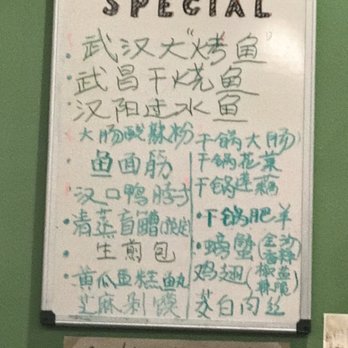 SPECIAL
武汉大"烤鱼"
武昌干烧鱼
汉阳过水鱼
大肠酸辣粉
鱼面筋
汉口鸭脖子
清蒸盲鰽
生煎包
黄瓜鱼糕
芝麻剁馍
干锅大肠
干锅花菜
干锅莲藕
干锅肥羊
螃蟹
鸡翅
茭白肉丝